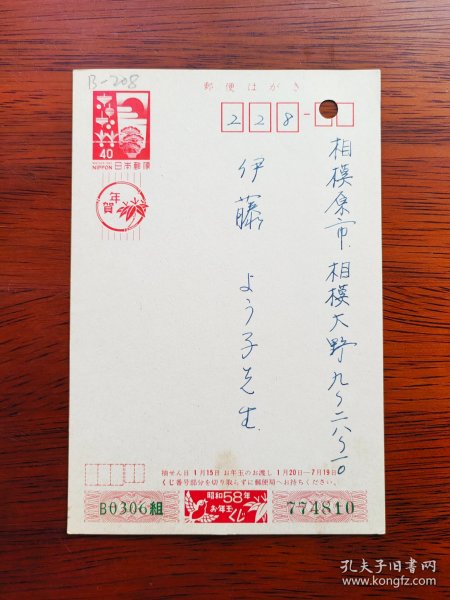 B-208
郵便はがき
40
NIPPON 日本郵便
年賀
228-
相模原市相模大野九〜二八〜一〇
伊藤 よう子先生
抽せん日 1月15日 お年玉のお渡し 1月20日—7月19日
くじ番号部分を切り取らずに郵便局へお持ちください。
B0306組
昭和58年
お年玉くじ
774810
孔夫子旧书网
www.kongfz.com